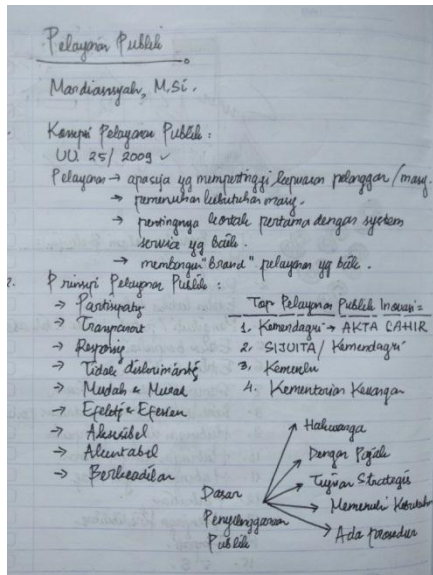 Pelayanan Publik
Mardiansyah, M.Si.
Konsep Pelayanan Publik :
UU. 25/2009 ✓
Pelayanan → apa saja yg mempertinggi kepuasan pelanggan / masy.
→ pemenuhan kebutuhan masy.
→ pentingnya kontak pertama dengan system
service yg baik.
→ membangun "Brand" pelayanan yg baik.
2. Prinsip Pelayanan Publik :
→ Partisipatif
→ Transparant
→ Responsif
→ Tidak diskriminatif
→ Mudah & Murah
→ Efektif & Efesien
→ Aksesibel
→ Akuntabel
→ Berkeadilan
Top Pelayanan Publik Inovasi =
1. Kemendagri → AKTA LAHIR
2. SIJUITA / Kemendagri
3. Kemenlu
4. Kementerian Keuangan
Dasar
Penyelenggaraan
Publik
Hak warga
Dengan Pajak
Tujuan Strategis
Memenuhi Kebutuhan
Ada prosedur